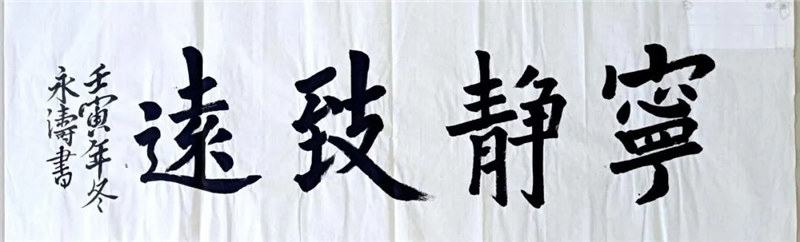 寧静致遠
壬寅年冬
永濤書